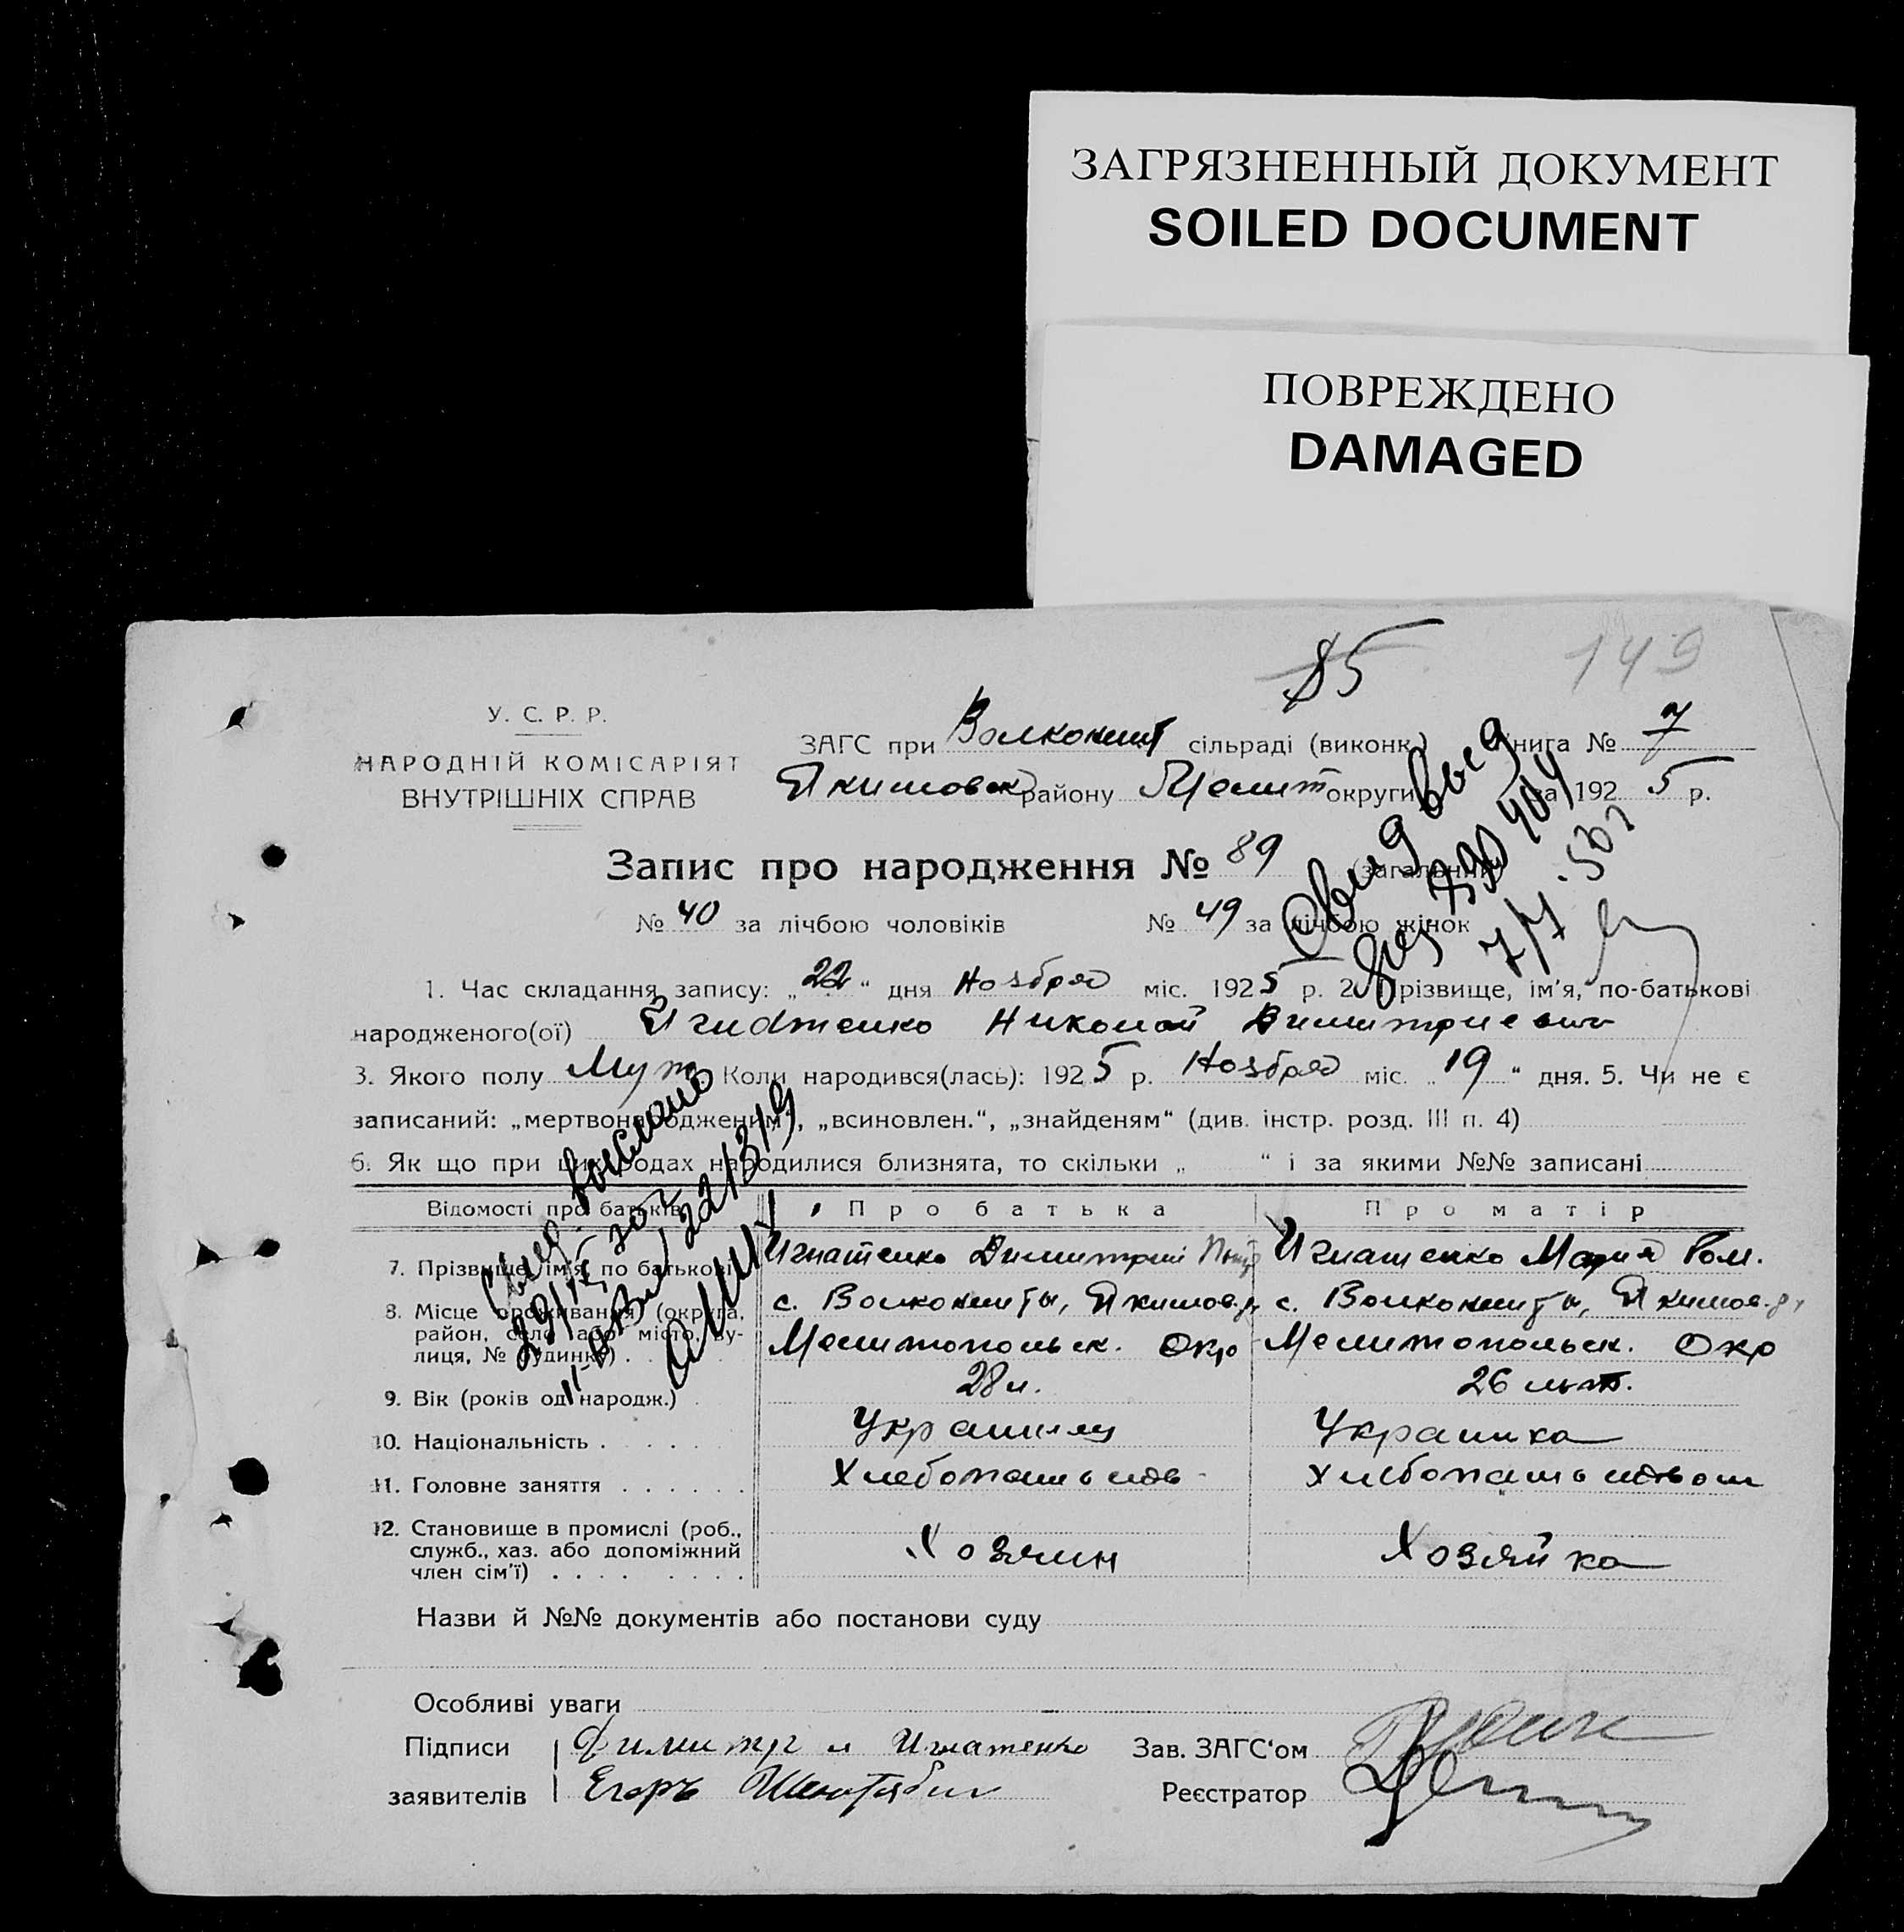 ЗАГРЯЗНЕННЫЙ ДОКУМЕНТ
SOILED DOCUMENT
ПОВРЕЖДЕНО
DAMAGED
85
149
У. С. Р. Р.
НАРОДНІЙ КОМІСАРІЯТ
ВНУТРІШНІХ СПРАВ
ЗАГС при Волконешт сільраді (виконк.) Книга № 7
Якимовск району Мелит округи на 1925 р.
Запис про народження № 89 (загальний)
№ 40 за лічбою чоловіків № 49 за лічбою жінок
1. Час складання запису: „22“ дня Ноября міс. 1925 р. 2. Прізвище, ім'я, по-батькові
народженого(ої) Игнатенко Николай Димитриевич
3. Якого полу Муж. Коли народився(лась): 1925 р. Ноября міс. „19“ дня. 5. Чи не є
записаний: „мертвонародженим“, „всиновлен.“, „знайденям“ (див. інстр. розд. III п. 4)
6. Як що при цих родах народилися близнята, то скільки „ “ і за якими №№ записані
Відомості про батьків Про батька Про матір
7. Прізвище, ім'я, по батькові Игнатенко Димитрий Игнатенко Мария Ром.
8. Місце проживання (округа, район, село або місто, вулиця, № будинку) с. Волконешты, Якимов. р, с. Волконешты, Якимов. р,
Мелитопольск. Окр Мелитопольск. Окр
9. Вік (років од народж.) 28 л. 26 лет.
10. Національність Украинец Украинка
11. Головне заняття Хлебопашество Хлебопашеством
12. Становище в промислі (роб., служб., хаз. або допоміжний член сім'ї) Хозяин Хозяйка
Назви й №№ документів або постанови суду
Особливі уваги
Підписи Димитри Игнатенко Зав. ЗАГС'ом
заявителів Егоръ Реєстратор
Свид выд
7/V-50г
Свид. выслано